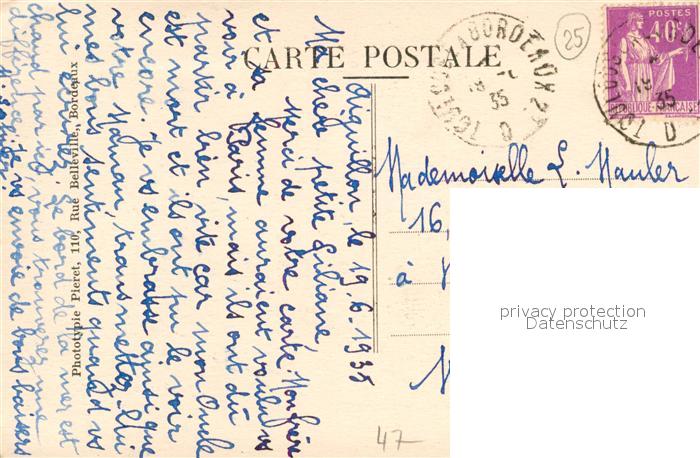 CARTE POSTALE
25
TOULOUSE A BORDEAUX 2°
35
D
POSTES
40c
REPUBLIQUE FRANÇAISE
35
D
Aiguillon, le 19.6.1935
Ma chère petite Liliane
Merci de votre carte. Mon frère
et sa femme auraient voulu vs
voir à Paris, mais ils ont dû
partir bien vite car mon Oncle
est mort et ils ont pu le voir
encore. Je vs embrasse ainsi que
votre Maman, transmettez-lui
mes bons sentiments quand vs
lui écrirez. Le bord de la mer est
chaud par ici, vous trouverez une
différence. Je vs envoie de bons baisers
Mademoiselle L. Mauler
16,
à
privacy protection
Datenschutz
47
Phototypie Pieret, 110, Rue Belleville, Bordeaux